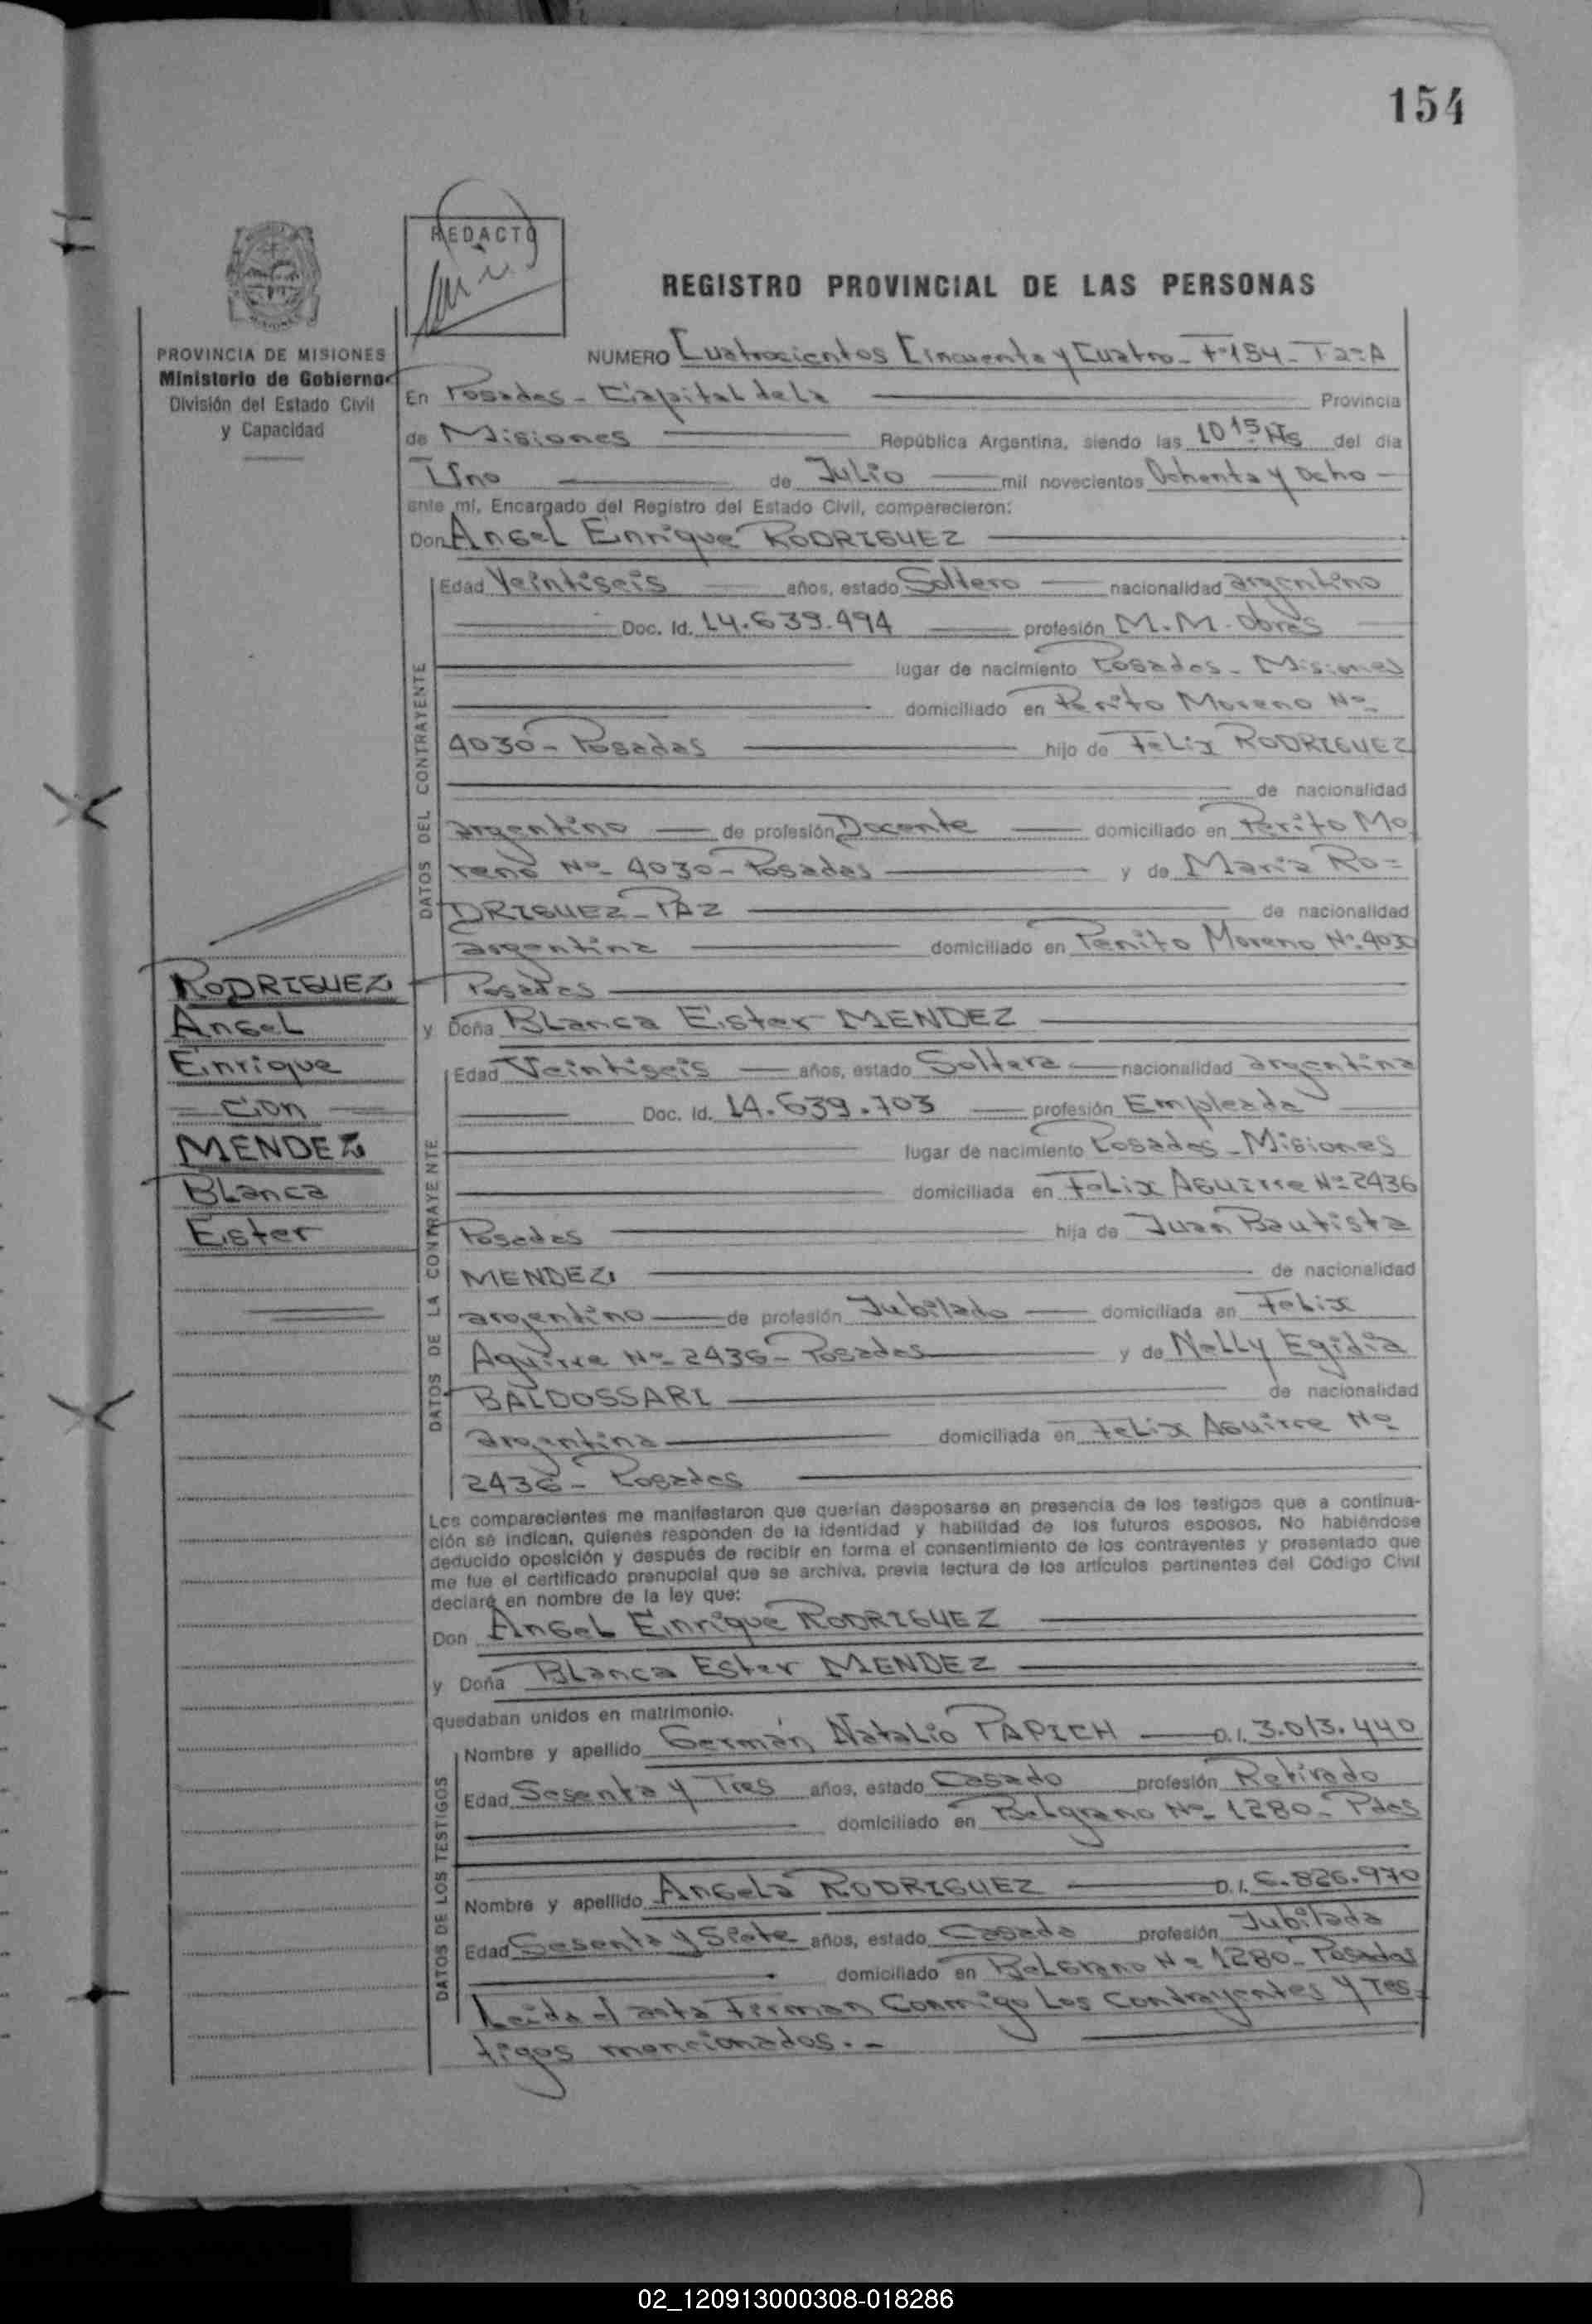 154
REDACTO
REGISTRO PROVINCIAL DE LAS PERSONAS
PROVINCIA DE MISIONES
Ministerio de Gobierno
División del Estado Civil
y Capacidad
NUMERO Cuatrocientos Cincuenta y Cuatro - Fº 154 - Tº 2º A
En Posadas - Capital de la Provincia
de Misiones República Argentina, siendo las 10 15 Hs del día
Uno de Julio mil novecientos Ochenta y Ocho -
ante mí, Encargado del Registro del Estado Civil, comparecieron:
Don Angel Enrique RODRIGUEZ
DATOS DEL CONTRAYENTE
Edad Veintiseis años, estado Soltero nacionalidad argentino
Doc. Id. 14.639.494 profesión M.M. Obras
lugar de nacimiento Posadas - Misiones
domiciliado en Perito Moreno Nº
4030 - Posadas hijo de Felix RODRIGUEZ
de nacionalidad
argentino de profesión Docente domiciliado en Perito Mo
reno Nº 4030 - Posadas y de Maria RO=
DRIGUEZ - PAZ de nacionalidad
argentina domiciliado en Perito Moreno Nº 4030
Posadas
RODRIGUEZ
Angel
Enrique
= Con =
MENDEZ
Blanca
Ester
y Doña Blanca Ester MENDEZ
DATOS DE LA CONTRAYENTE
Edad Veintiseis años, estado Soltera nacionalidad argentina
Doc. Id. 14.639.703 profesión Empleada
lugar de nacimiento Posadas - Misiones
domiciliada en Felix Aguirre Nº 2436
Posadas hija de Juan Bautista
MENDEZ de nacionalidad
argentino de profesión Jubilado domiciliada en Felix
Aguirre Nº 2436 - Posadas y de Nelly Egidia
BALDOSSARI de nacionalidad
argentina domiciliada en Felix Aguirre Nº
2436 - Posadas
Los comparecientes me manifestaron que querían desposarse en presencia de los testigos que a continua-
ción se indican, quienes responden de la identidad y habilidad de los futuros esposos. No habiéndose
deducido oposición y después de recibir en forma el consentimiento de los contrayentes y presentado que
me fue el certificado prenupcial que se archiva, previa lectura de los artículos pertinentes del Código Civil
declaré en nombre de la ley que:
Don Angel Enrique RODRIGUEZ
y Doña Blanca Ester MENDEZ
quedaban unidos en matrimonio.
DATOS DE LOS TESTIGOS
Nombre y apellido Germán Natalio PAPICH D.I. 3.013.440
Edad Sesenta y Tres años, estado Casado profesión Retirado
domiciliado en Belgrano Nº 1280 - Pdas
Nombre y apellido Angela RODRIGUEZ D.I. 6.826.970
Edad Sesenta y Siete años, estado Casada profesión Jubilada
domiciliado en Belgrano Nº 1280 - Posadas
Leida el acta Firman Conmigo Los Contrayentes y Tes-
tigos mencionados.-
02_120913000308-018286